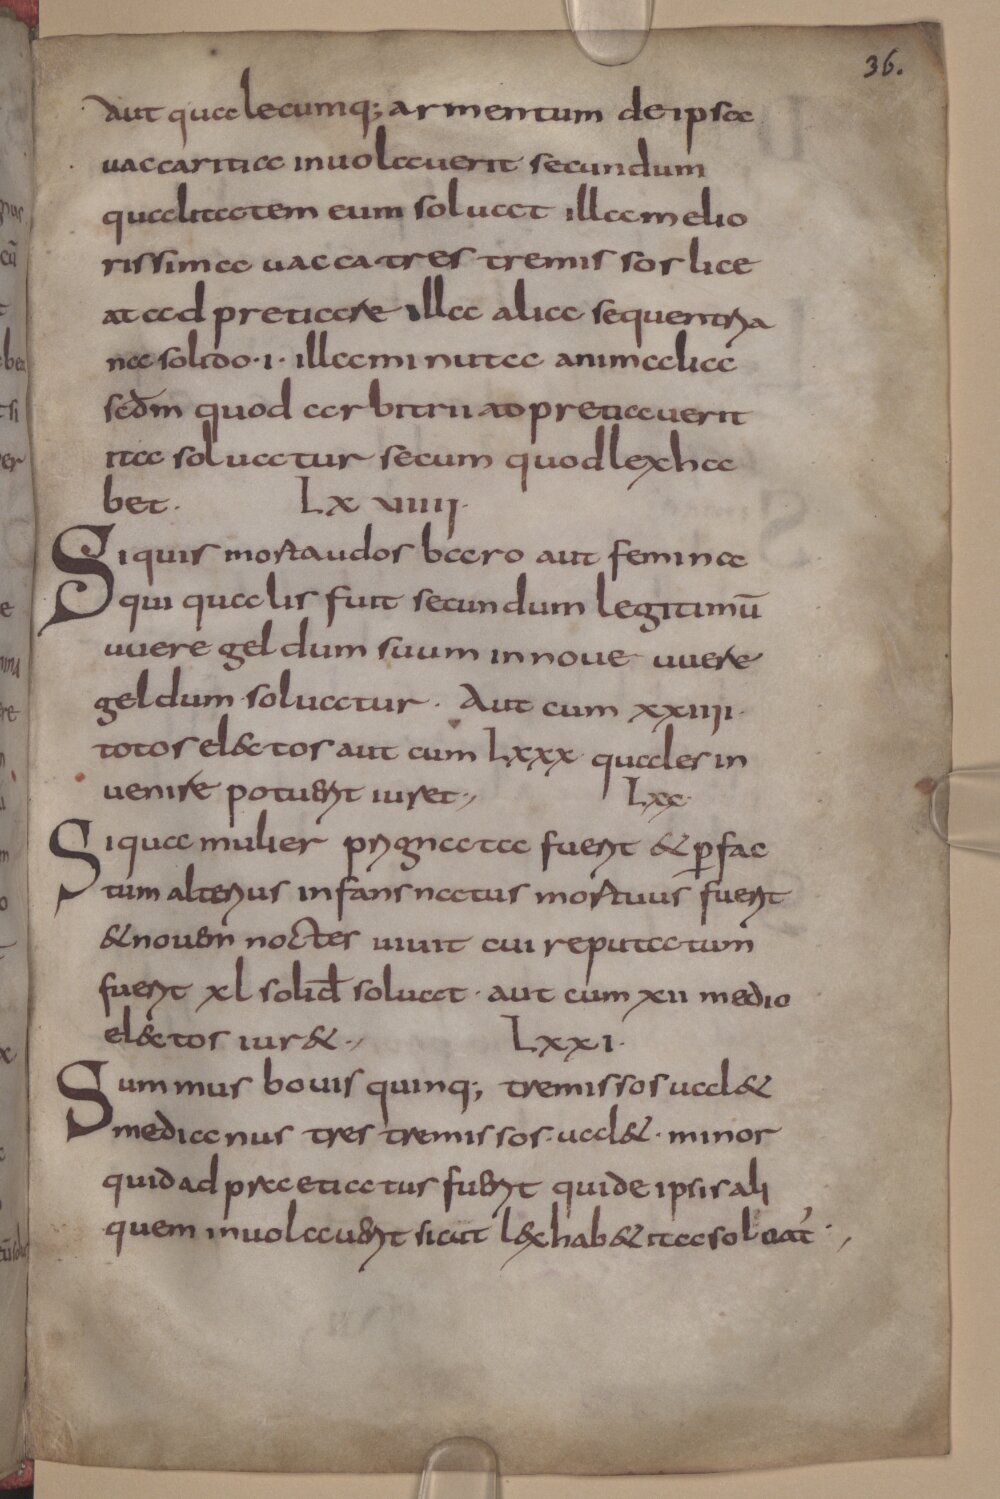 36.
Aut qualecumq; armentum deipsa
uaccaritia inuolauerit secundum
qualitatem eum soluat illa melio
rissima uacca tres tremissos lice
at ad pretiare illa alia sequentria
na solido · i · illa minuta animalia
secđm quod arbitrii ato pretiauerit
ita soluatur secum quod lex ha
bet · Lx viiii ·
Siquis mortaudos baro aut femina
qui qualis fuit secundum legitimū
uuere geldum suum in noue uuere
geldum soluatur · Aut cum xxiiii ·
totos el&tos aut cum Lxxx quales in
uenire potuerit iuret ·, Lxx ·
Siqua mulier prignata fuerit & p̱ fac
tum alterius infans natus mortuus fuerit
& nouem noctes uiuit cui reputatum
fuerit xl solid̄ soluat · aut cum xii medio
el&tos iur& ·, Lxxi ·
Summus bouis quinq; tremissos ual&
medianus tres tremissos · ual& · minor
quid adpraetiatus fuerit quide ipsis ali
quem inuolauerit sicut l&x hab& ita soluat ·,